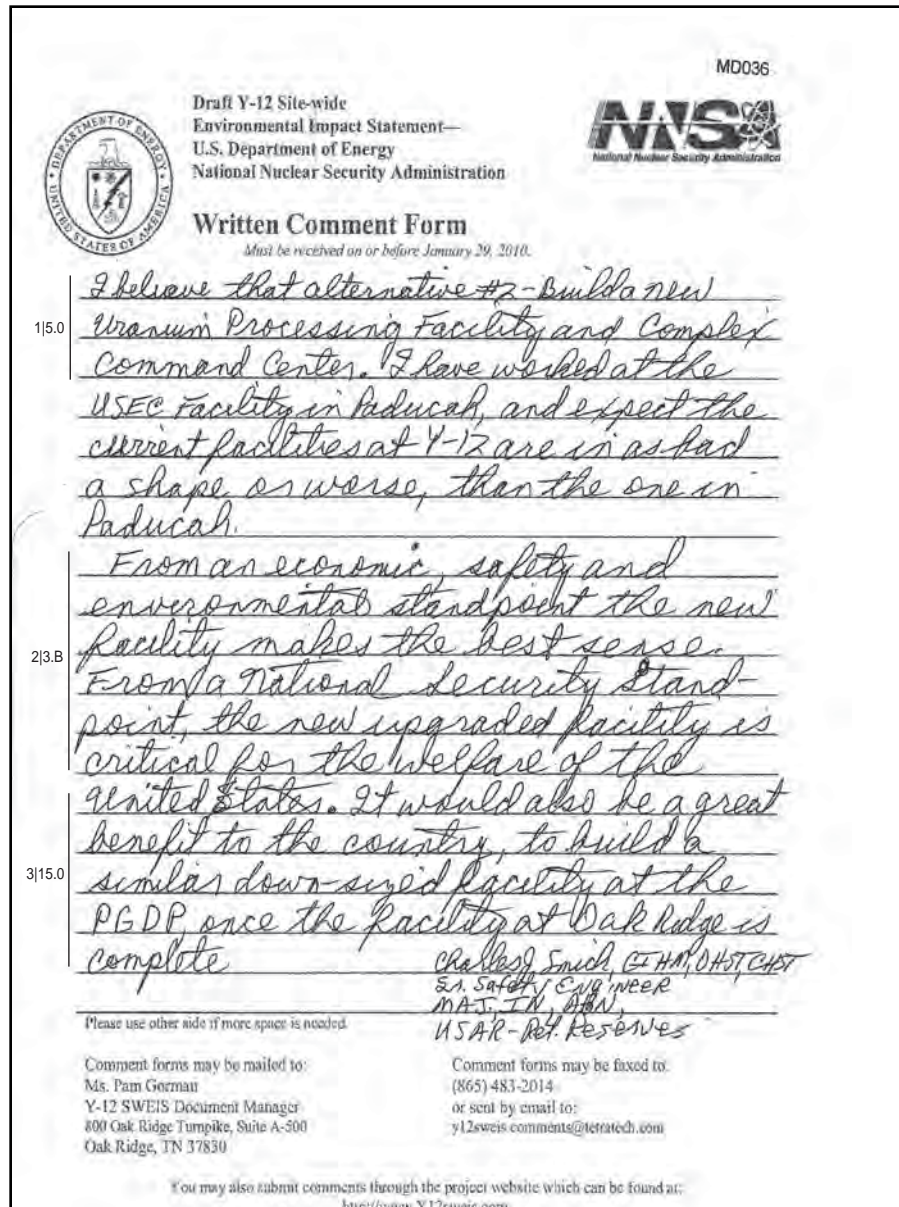 MD036
Draft Y-12 Site-wide
Environmental Impact Statement—
U.S. Department of Energy
National Nuclear Security Administration
DEPARTMENT OF ENERGY
UNITED STATES OF AMERICA
NNSA
National Nuclear Security Administration
Written Comment Form
Must be received on or before January 29, 2010.
1|5.0
I believe that alternative #2 - Build a new
Uranium Processing Facility and Complex
Command Center. I have worked at the
USEC Facility in Paducah, and expect the
current facilities at Y-12 are in as bad
a shape, or worse, than the one in
Paducah.
2|3.B
From an economic, safety and
environmental standpoint the new
facility makes the best sense.
From a National Security Stand-
point, the new upgraded facility is
critical for the welfare of the
3|15.0
United States. It would also be a great
benefit to the country, to build a
similar down-sized facility at the
PGDP, once the facility at Oak Ridge is
complete
Charles J. OHST, CHST
Sr. Safety Engineer
MAJ, IN,
USAR-Ret. Reserves
Please use other side if more space is needed.
Comment forms may be mailed to:
Ms. Pam Gorman
Y-12 SWEIS Document Manager
800 Oak Ridge Turnpike, Suite A-500
Oak Ridge, TN 37830
Comment forms may be faxed to:
(865) 483-2014
or sent by email to:
y12sweis.comments@tetratech.com
You may also submit comments through the project website which can be found at: